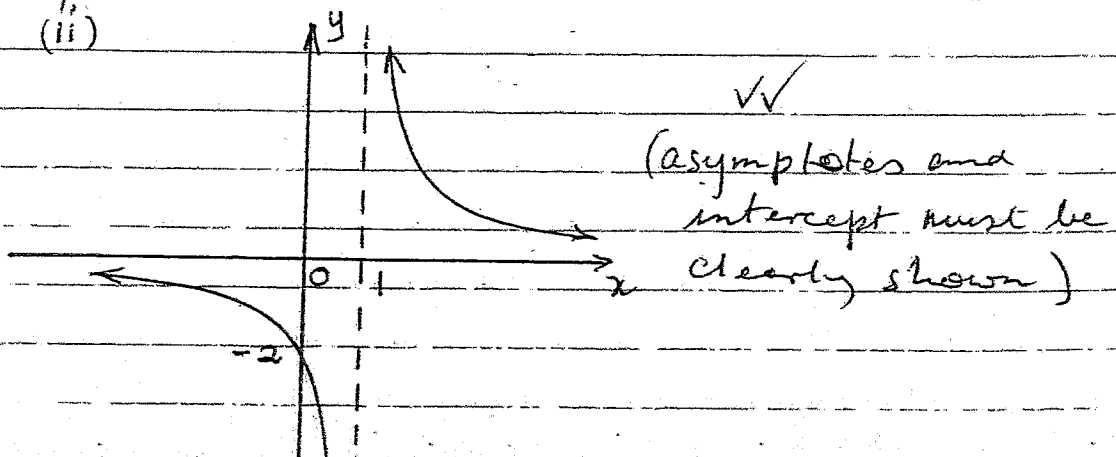 (ii)
y
✓✓
(asymptotes and
intercept must be
clearly shown)
0
1
x
-2